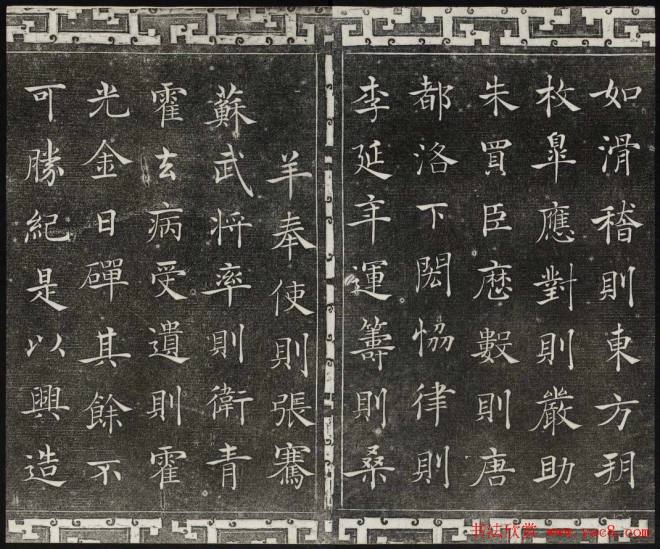 如滑稽則東方朔
枚皐應對則嚴助
朱買臣厯數則唐
都洛下閎恊律則
李延年運籌則桑
羊奉使則張騫
蘇武將率則衛青
霍去病受遺則霍
光金日磾其餘不
可勝紀是以興造
书法欣赏 www.yac8.com